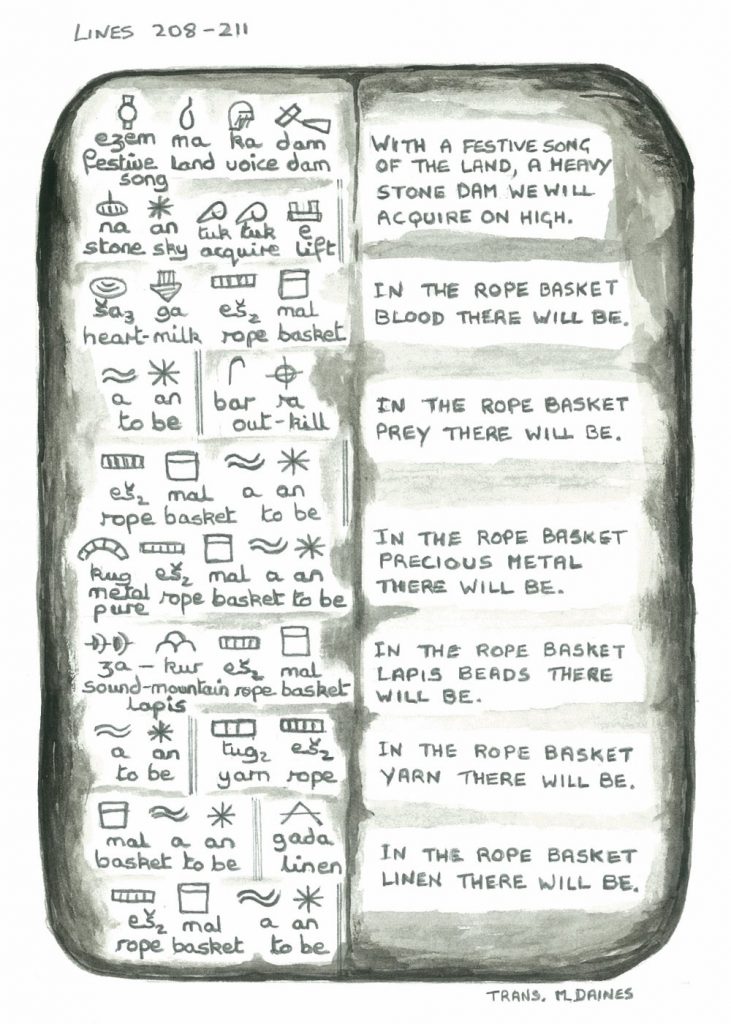 LINES 208-211
ezem ma ka dam
festive land voice dam
song
na an tuk tuk e
stone sky acquire lift
ša₃ ga eš₂ mal
heart-milk rope basket
a an bar ra
to be out-kill
eš₂ mal a an
rope basket to be
kug eš₂ mal a an
metal rope basket to be
pure
za-kur eš₂ mal
sound-mountain rope basket
lapis
a an tug₂ eš₂
to be yarn rope
mal a an gada
basket to be linen
eš₂ mal a an
rope basket to be
WITH A FESTIVE SONG
OF THE LAND, A HEAVY
STONE DAM WE WILL
ACQUIRE ON HIGH.
IN THE ROPE BASKET
BLOOD THERE WILL BE.
IN THE ROPE BASKET
PREY THERE WILL BE.
IN THE ROPE BASKET
PRECIOUS METAL
THERE WILL BE.
IN THE ROPE BASKET
LAPIS BEADS THERE
WILL BE.
IN THE ROPE BASKET
YARN THERE WILL BE.
IN THE ROPE BASKET
LINEN THERE WILL BE.
TRANS. M.DAINES